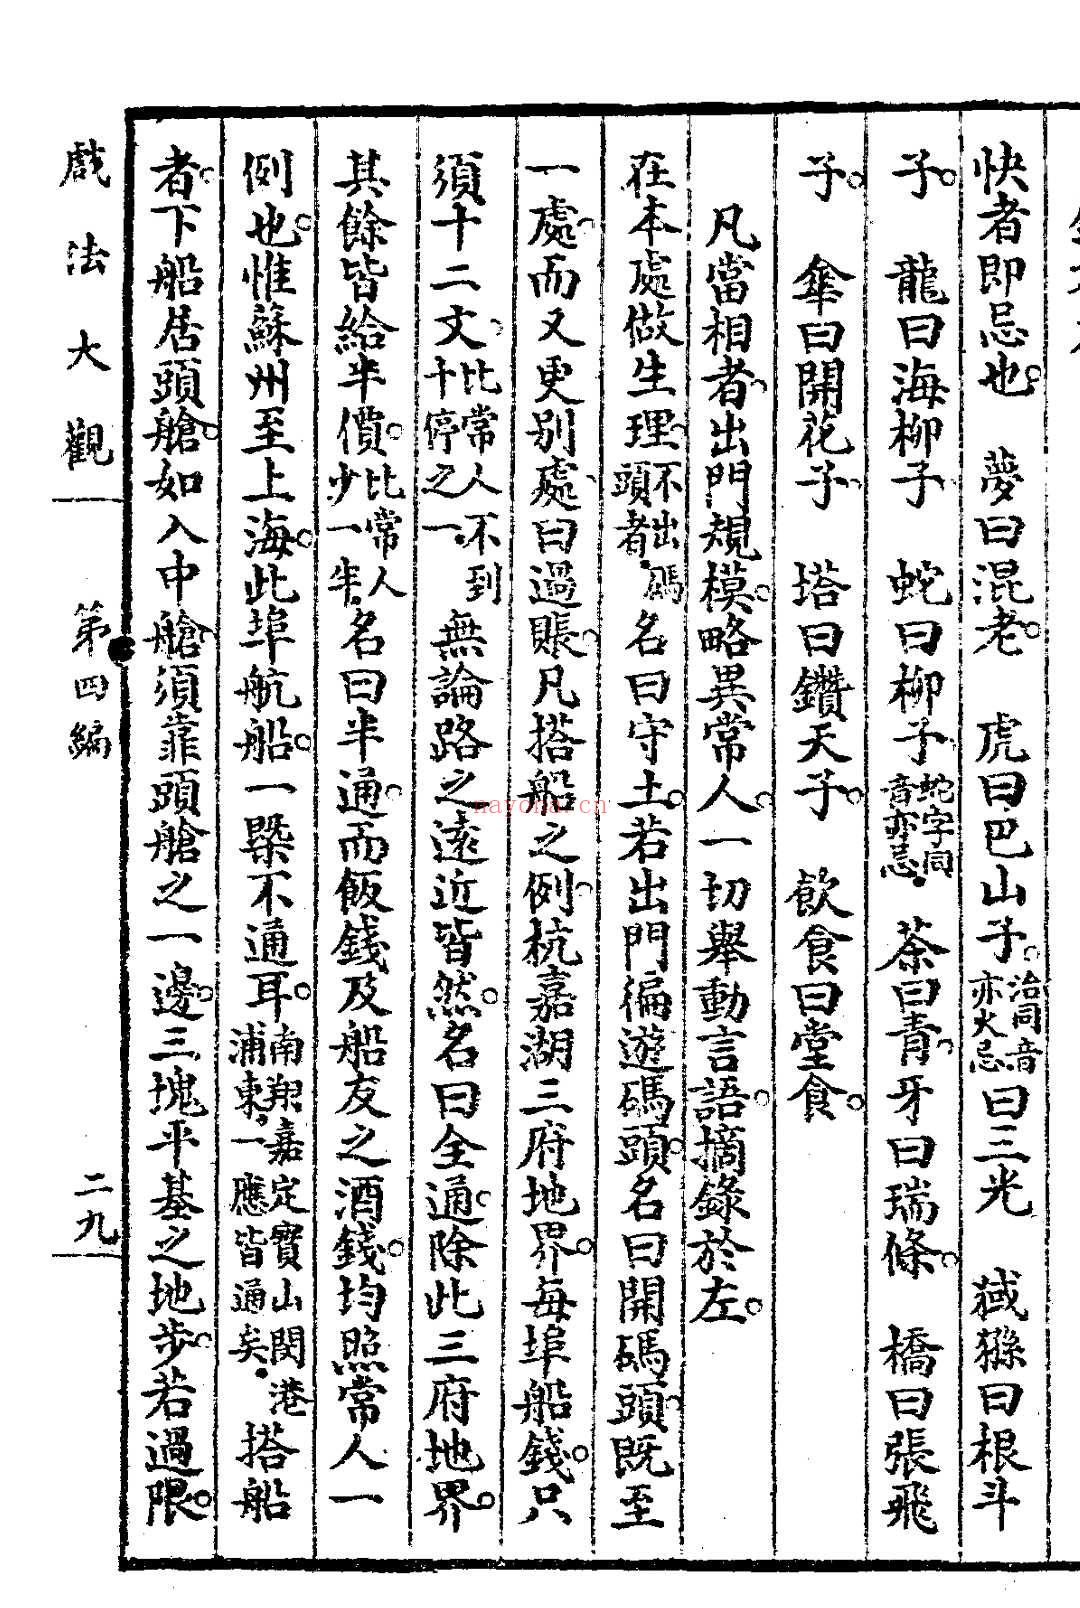 快者即忌也。　夢曰混老。　虎曰巴山子。治同音亦火忌曰三光　猢猻曰根斗
子。　龍曰海柳子。　蛇曰柳子。蛇字同音亦忌。　茶曰青。　牙曰瑞條。　橋曰張飛
子。　傘曰開花子。　塔曰鑽天子。　飲食曰堂食。
凡當相者。出門規模。略異常人。一切舉動言語。摘錄於左。
在本處做生理。不出碼頭者。名曰守土。若出門徧遊碼頭。名曰開碼頭。既至
一處。而又更別處。曰過賬。凡搭船之例。杭嘉湖三府地界。每埠船錢。只
須十二文。比常人不到十停之一。無論路之遠近皆然。名曰全通。除此三府地界。
其餘皆給半價。比常人少一半。名曰半通。而飯錢及船友之酒錢。均照常人一
例也。惟蘇州至上海。此埠航船。一槩不通耳。南翔嘉定寶山閔港浦東。一應皆通矣。搭船
者。下船居頭艙。如入中艙。須靠頭艙之一邊。三塊平基之地步。若過限。
戲法大觀　第四編　二九
nayona.cn